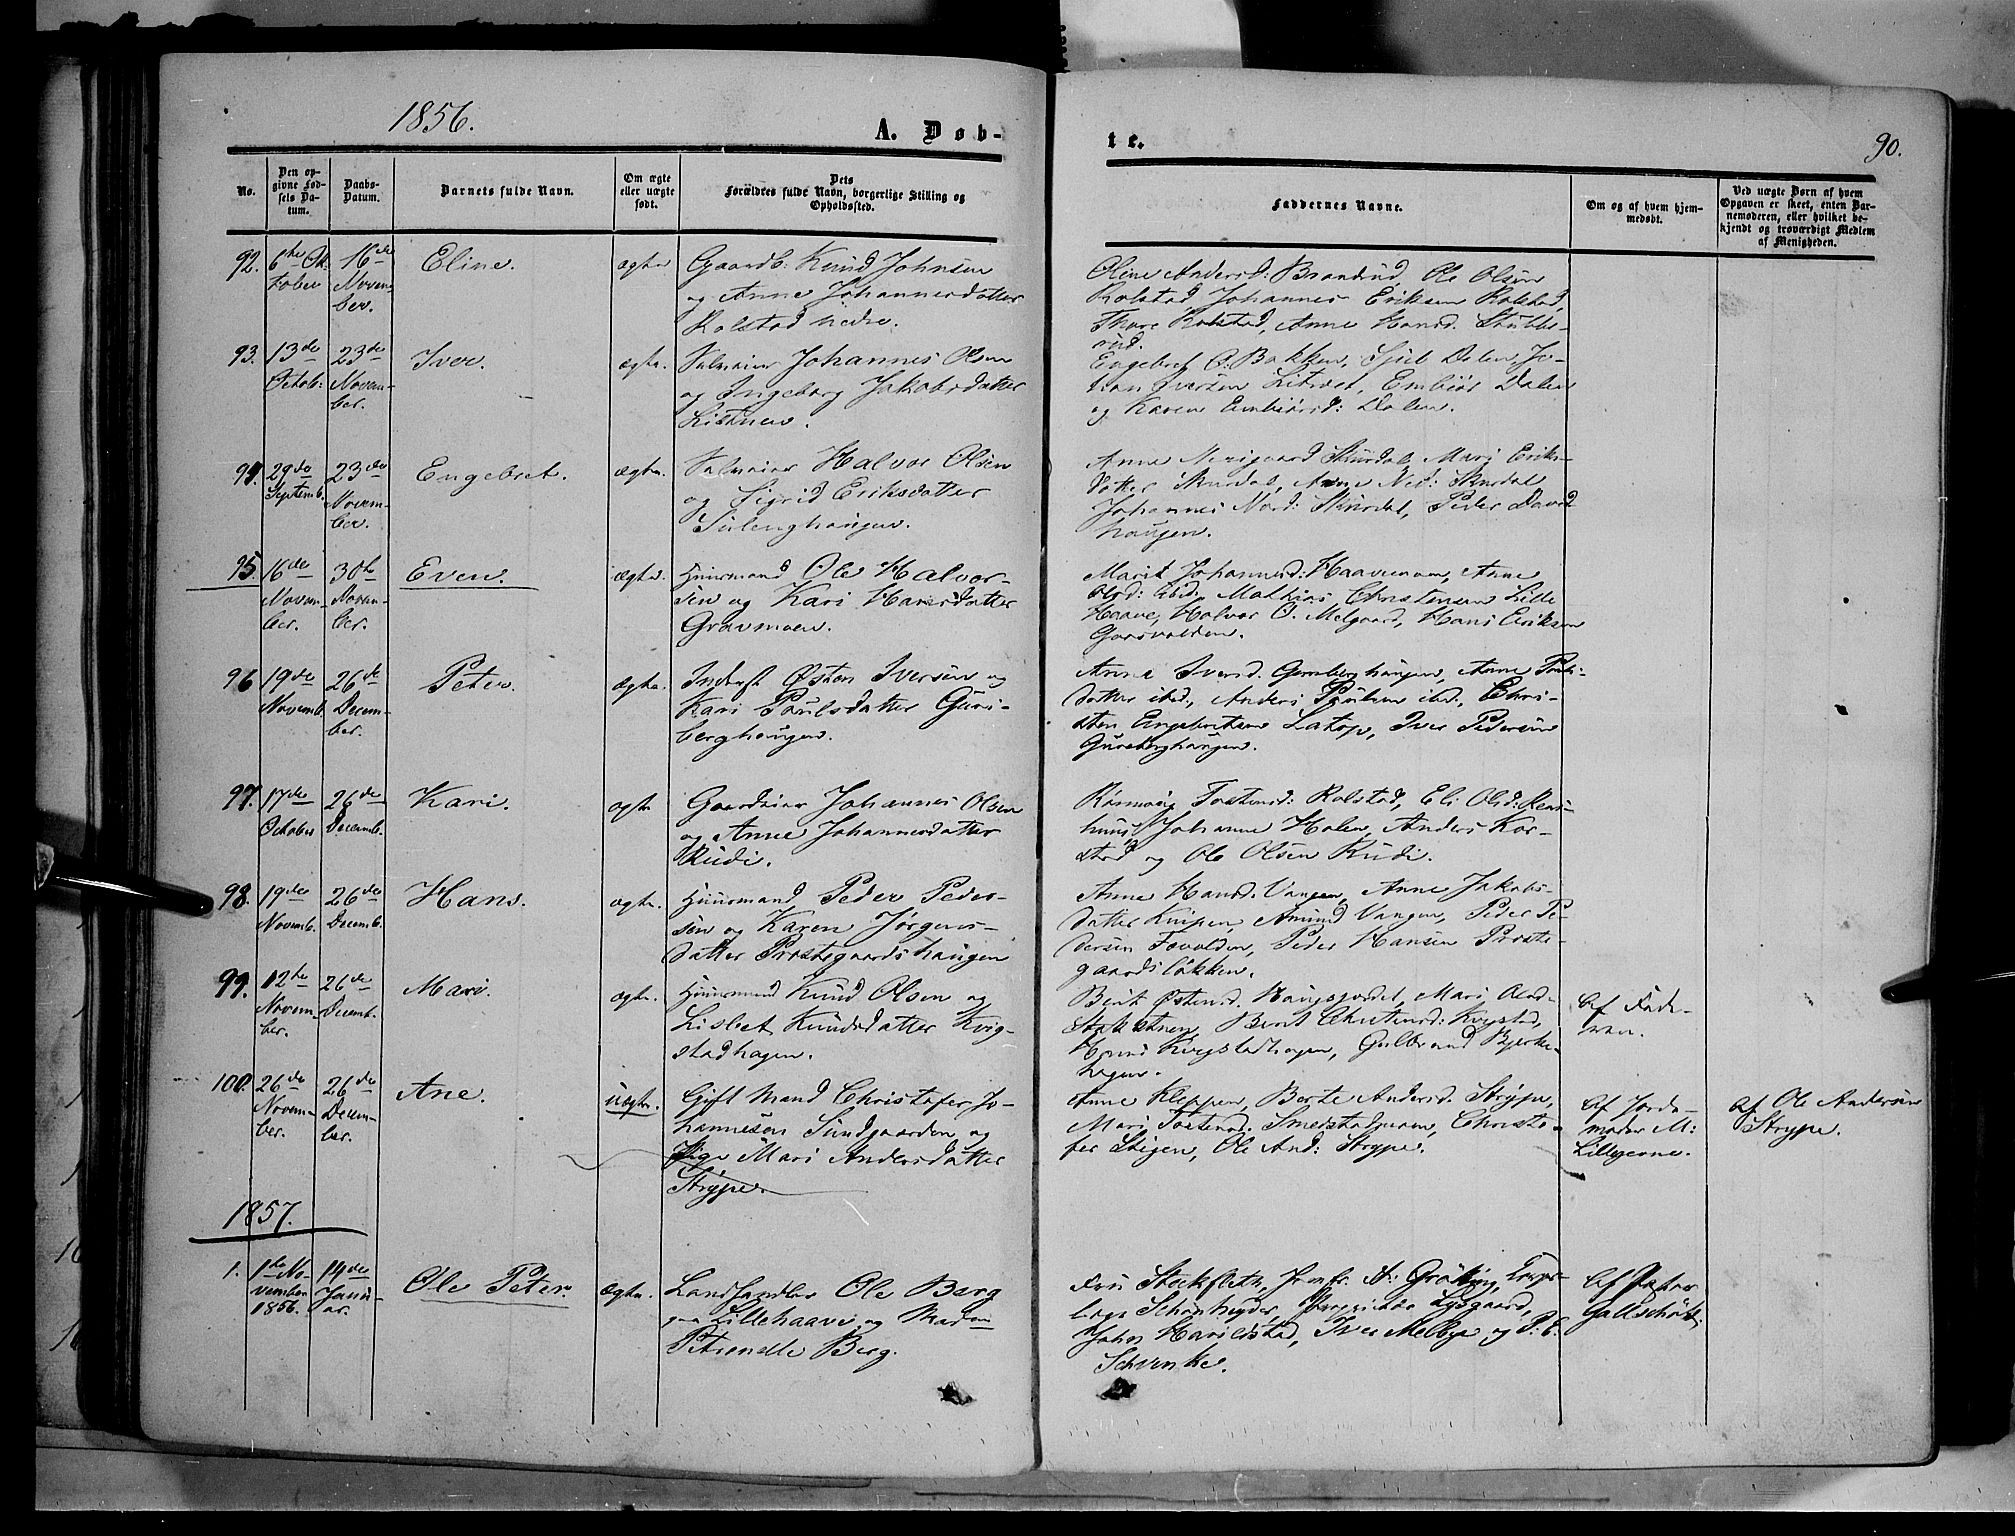 1856.
A. Døb-
te.
90.
No.
Den op-
givne Fød-
sels Da-
tum.
Daabs-
Datum.
Barnets fulde Navn.
Om ægte
eller uægte
født.
Dets
Forældres fulde Navn, borgerlige Stilling og
Opholdssted.
Faddernes Navne.
Om og af hvem hjem-
medøbt.
Ved uægte Børn af hvem
Opgaven er skeet, enten Bar-
nemoderen, eller hvilket be-
kjendt og troværdigt Medlem
af Menigheden.
92. 6te Ok-
tober
16de
Novem-
ber.
Eline.
ægte
Gaardb: Knud Johnsen
og Anne Johannesdatter
Kolstad nedre.
Oline Andersd: Brandrud, Ole Olsen
Kolstad, Johannes Eriksen Kolstad,
Thore Kolstad, Anne Hansd. Stubbe-
rud.
93. 13de
Octob:
23de
Novem-
ber.
Iver.
ægte.
Johannes Olsen
og Ingeborg Jakobsdatter
Engebret O. Bakken, Sjul Dalen, Jo-
han Iversen Embiør Dalen
og Karen Embiørsd: Dalen.
94. 29de
Septemb.
23de
Novem-
ber.
Engebret.
ægte.
Halvor Olsen
og Sigrid Eriksdatter
Anne Skurdal, Mari Eriks-
datter Skurdal, Anne Ned: Skurdal
Johannes Nord: Skurdal, Peder
haugen.
95. 16de
Novem-
ber.
30te
Novem-
ber.
Even.
ægte.
Huusmand Ole Halvor-
sen og Kari Hansdatter
Gravmoen.
Marit Johannesd: Haavemoen, Anne
Olsd: ibid. Mathias Christensen Lille
Haave, Halvor O. Melgaard, Hans Eriksen
96 19de
Novemb.
26de
Decem-
ber.
Peter.
ægte.
Inderst Østen Iversen og
Kari Poulsdatter Guris-
berghaugen.
Anne Iversd. Anne Pouls-
datter ibid., Anders Poulsen ibid., Chri-
sten Engebretsen Iver Pedersen
97. 17de
October
26de
Decemb.
Kari.
ægte
Gaardeier Johannes Olsen
og Anne Johannesdatter
Rudi.
Tostensd: Kolstad, Eli Olsd:
Johanne Holen, Anders Kor-
stad og Ole Olsen Rudi.
98. 19de
Novemb.
26de
Decemb.
Hans.
ægte.
Huusmand Peder Peder-
sen og Karen Jørgens-
datter Præstegaardshaugen
Anne Hansd. Vangen, Anne Jakobs-
datter Amund Vangen, Peder Pe-
dersen Peder Hansen Præste-
gaardsløkken.
99. 12te
Novem-
ber.
26de
Decemb.
Mari.
ægte.
Huusmand Knud Olsen og
Lisbet Knudsdatter Kvig-
stadhagen.
Berit Østensd. Mari
Christensd: Kvigstad,
Kvigstadhagen, Gulbrand Bjerke-
hagen.
Af Fade-
ren.
100. 26de
Novem-
ber.
26de
Decem-
ber.
Ane.
uægte.
Gift Mand Christofer Jo-
hannesen Sundgaarden og
Pige Mari Andersdatter
Strype.
Anne Kleppen, Berte Andersd. Strype,
Mari Tostensd. Christo-
fer Stigen, Ole And: Strype.
Af Jorde-
moder M:
Af Ole Andersen
Strype.
1857.
1. 1ste No-
vember
1856.
14de
Janu-
ar.
Ole Peter
ægte.
Landhandler Ole Berg
paa Lillehaave og Madam
Petronelle Berg.
Fru Stockfleth, Jomfr.
Schønheyder, Lysgaard,
John Harildstad, Iver Melbye og P: C.
Schvenke.
Af Pastor